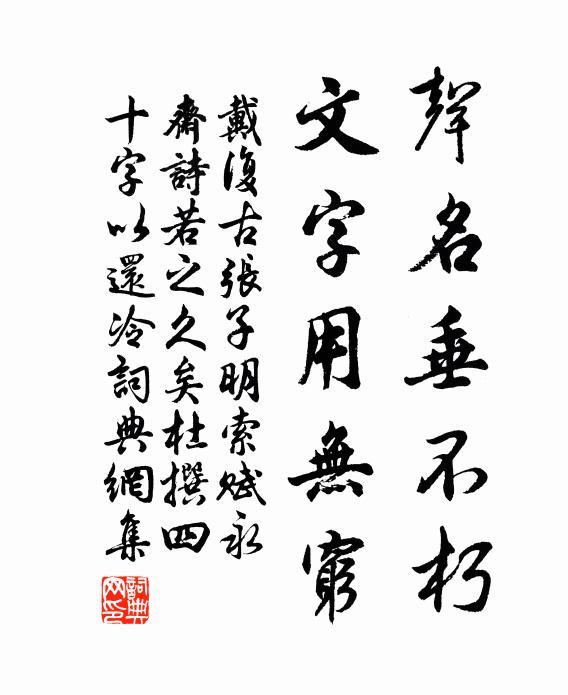 聲名垂不朽
文字用無窮
戴復古張子明索賦永
齋詩若之久矣杜撰四
十字以還冷詞典網集
詞典網印